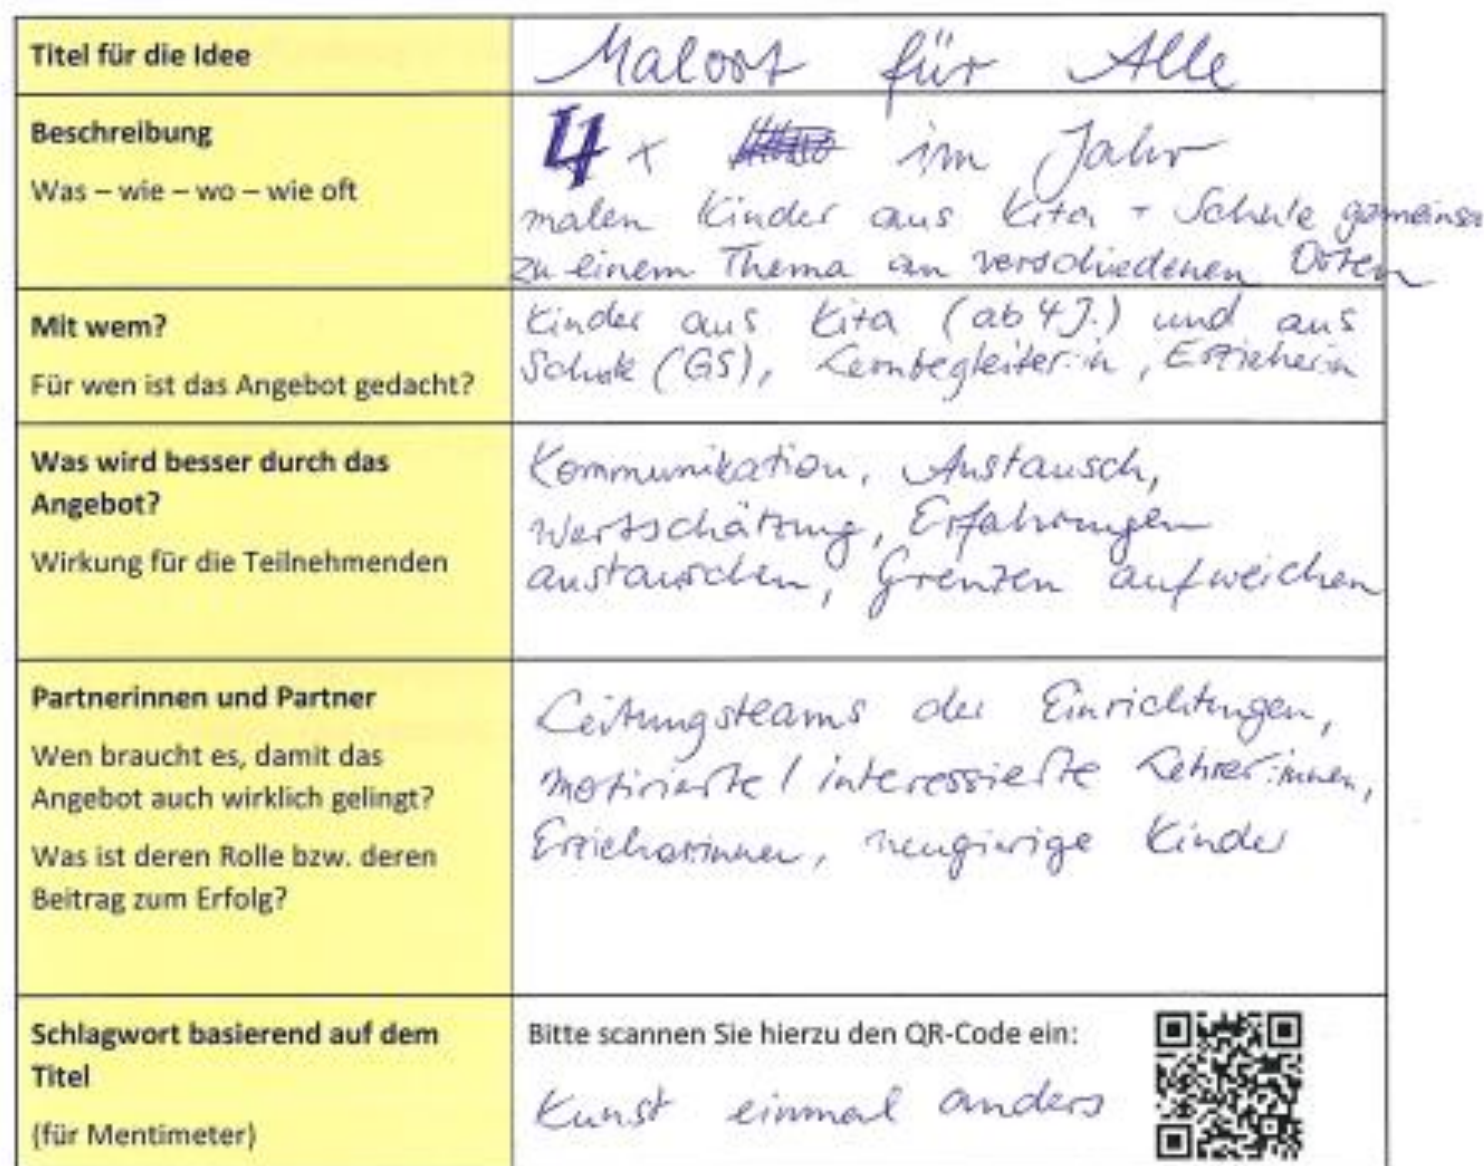 Titel für die Idee
Malort für Alle
Beschreibung
Was – wie – wo – wie oft
4 x im Jahr
malen Kinder aus Kita + Schule gemeinsa
zu einem Thema an verschiedenen Orten
Mit wem?
Für wen ist das Angebot gedacht?
Kinder aus Kita (ab 4 J.) und aus
Schule (GS), Lernbegleiter:in, Erzieher:in
Was wird besser durch das
Angebot?
Wirkung für die Teilnehmenden
Kommunikation, Austausch,
Wertschätzung, Erfahrungen
austauschen, Grenzen aufweichen
Partnerinnen und Partner
Wen braucht es, damit das
Angebot auch wirklich gelingt?
Was ist deren Rolle bzw. deren
Beitrag zum Erfolg?
Leitungsteams der Einrichtungen,
motivierte / interessierte Lehrer:innen,
Erzieherinnen, neugierige Kinder
Schlagwort basierend auf dem
Titel
(für Mentimeter)
Bitte scannen Sie hierzu den QR-Code ein:
Kunst einmal anders